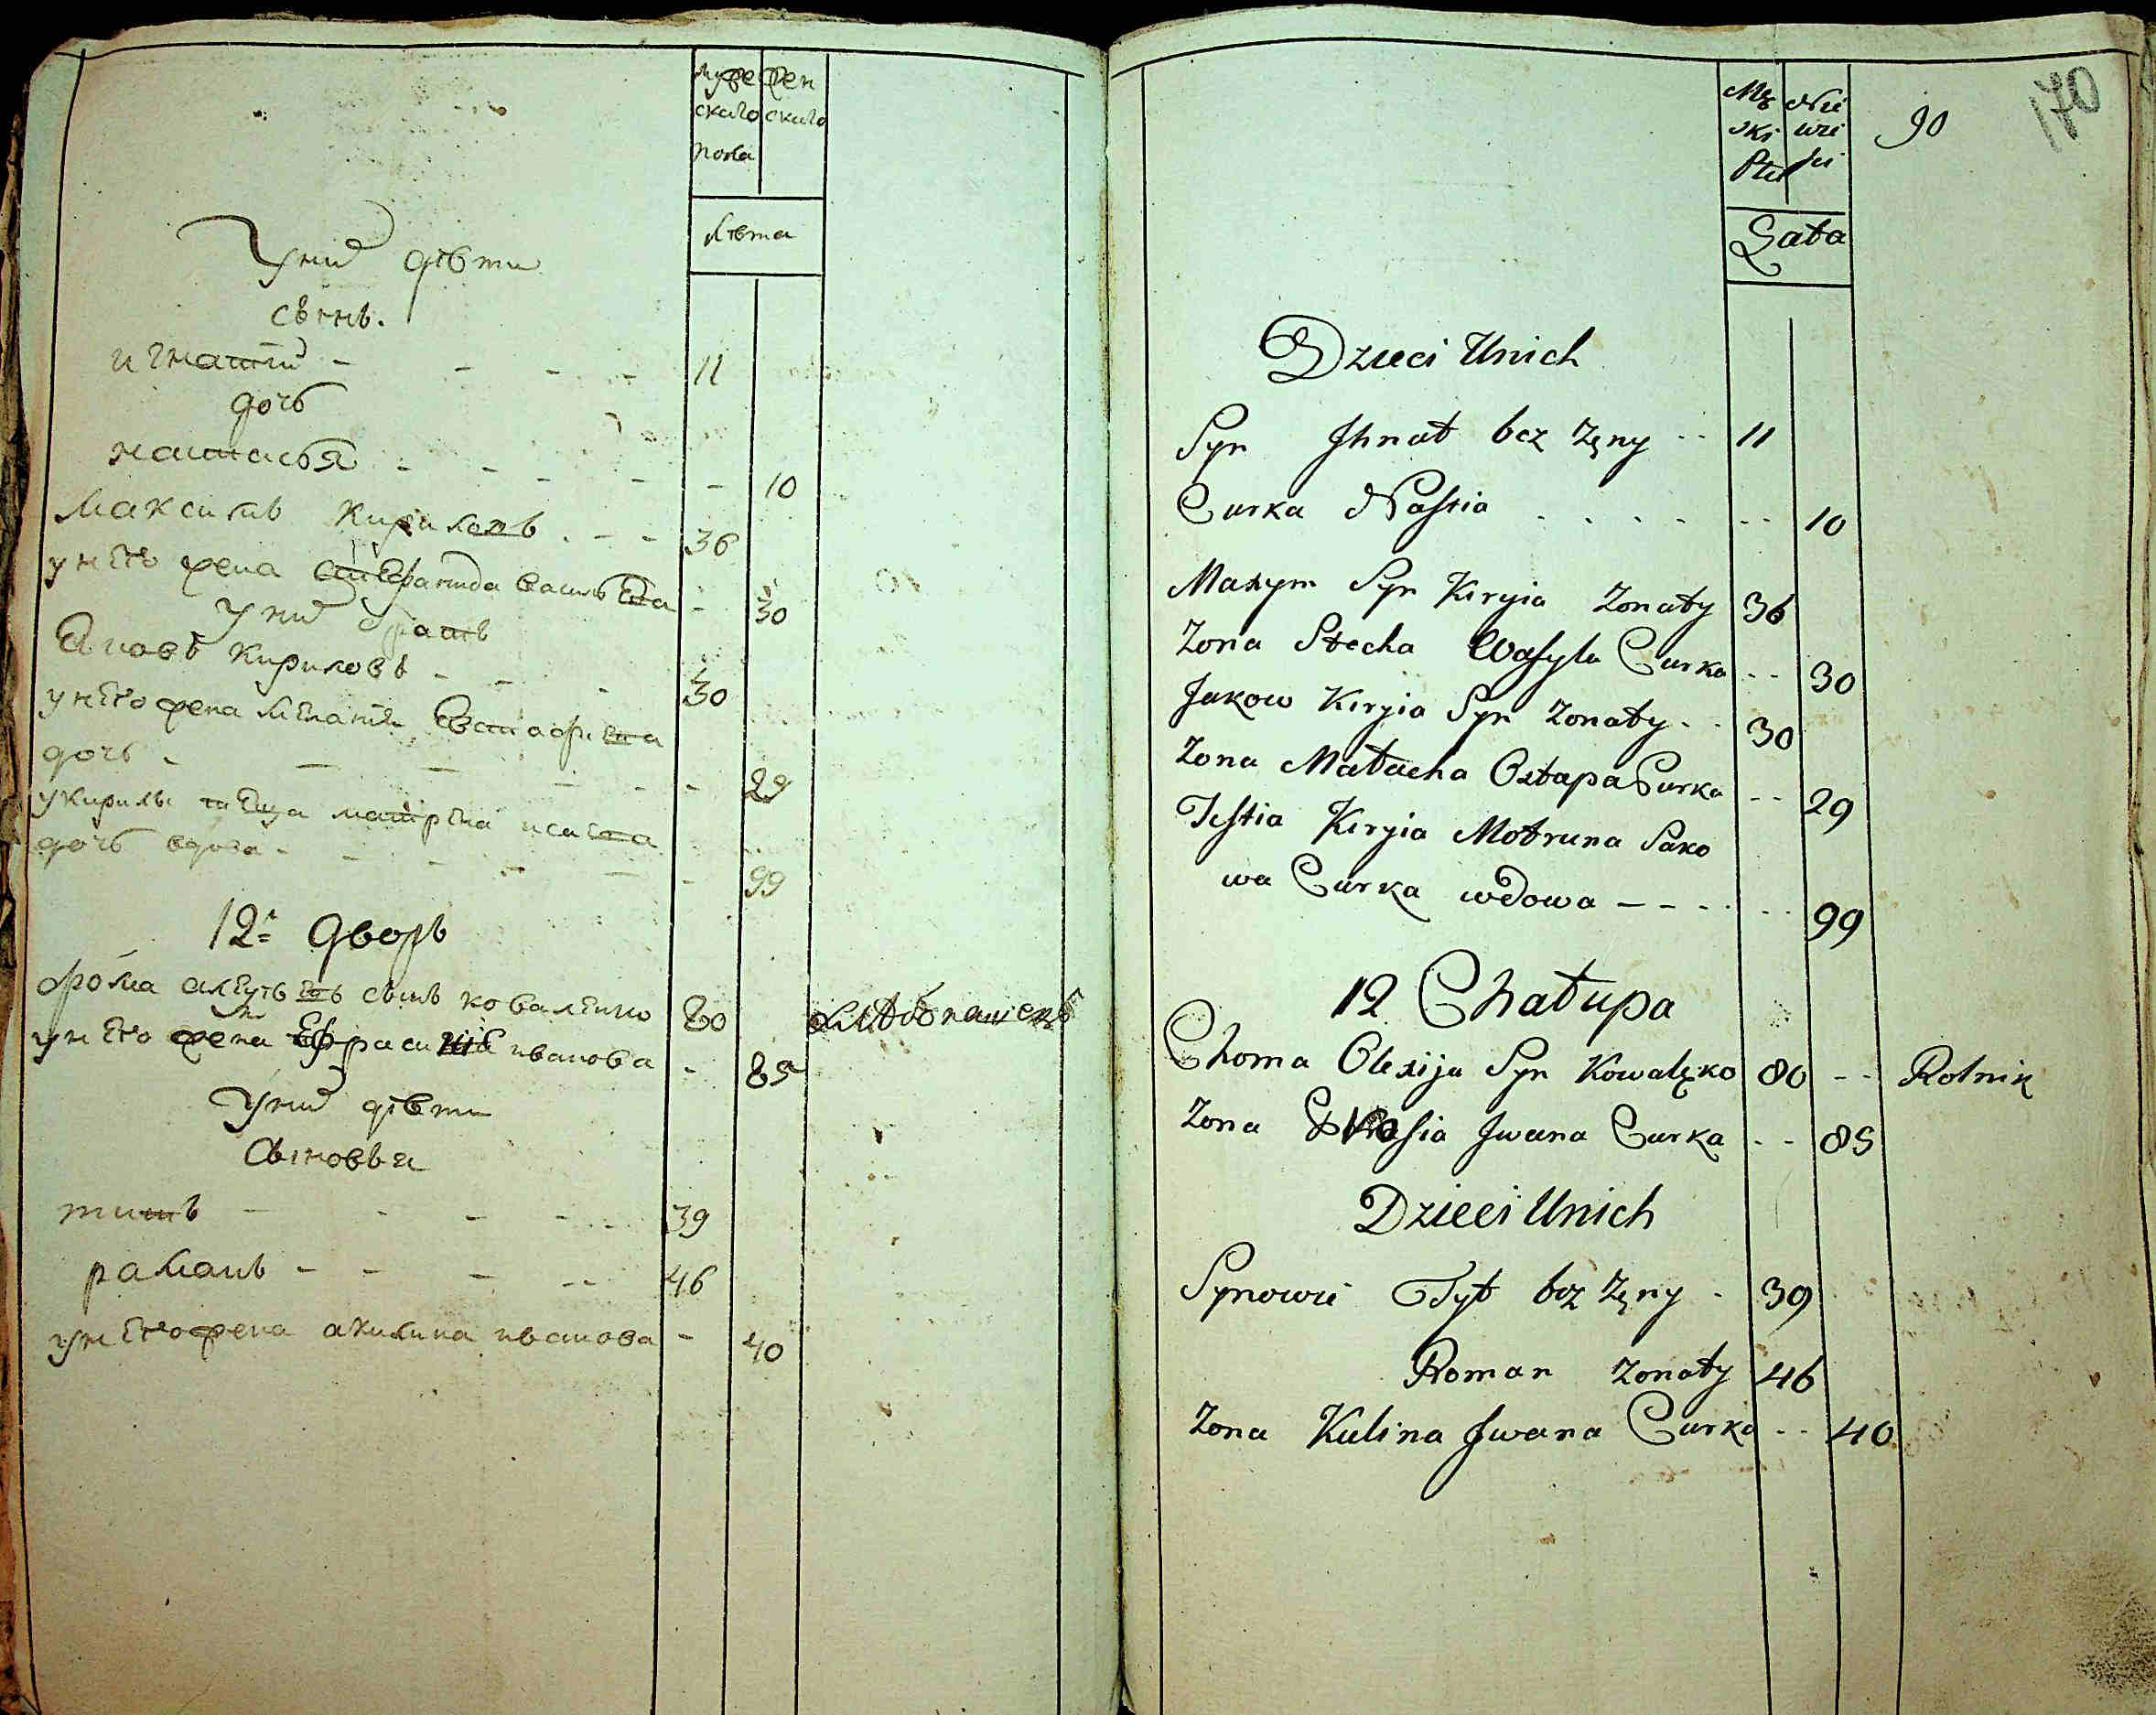 муже жен
скаго скаго
пола
лѣта
У них дѣти
сынъ.
игнатий - - - - 11
дочь
настасья - - - - - 10
Максимъ Кириловъ - - - 36
у него жена Степанида васильева - 30
У них братъ
Яковъ Кириловъ - - - 30
у него жена Меланья Евстафиева
дочь - - - - - - 29
у Кирилы теща матрена исаева
дочь вдова - - - - - - 99
12й дворъ
фома алексѣевъ сынъ коваленко 80 хлѣбопашецъ
у него жена Ефросиния иванова - 85
У них дѣти
Сыновья
титъ - - - - - 39
раманъ - - - - 46
у него жена акилина иванова - 40
Mę Nie
ski wie
Płci ści
90
170
Lata
Dzieci Unich
Syn Jhnat bez żęny - - 11
Curka Nastia - - - - - - 10
Maxym Syn Kiryia Zonaty 36
Zona Stecha Wasyla Curka - - 30
Jakow Kiryia Syn Zonaty - - 30
Zona Małacha Ostapa Curka - - 29
Testia Kiryia Motruna Sako
wa Curka wdowa - - - - - - 99
12 Chałupa
Choma Olexija Syn Kowalęko 80 - - Rolnik
Zona Jwana Curka - - 85
Dzieci Unich
Synowie Tyt bez żęny - 39
Roman Zonaty 46
Zona Kulina Jwana Curka - - 40